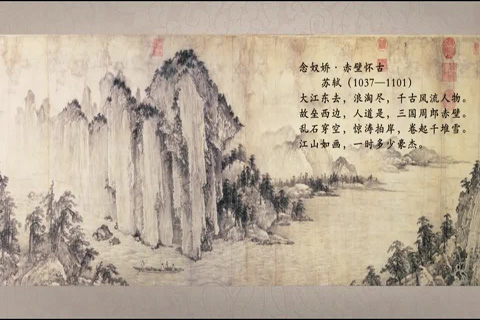 念奴娇·赤壁怀古
苏轼（1037—1101）
大江东去，浪淘尽，千古风流人物。
故垒西边，人道是，三国周郎赤壁。
乱石穿空，惊涛拍岸，卷起千堆雪。
江山如画，一时多少豪杰。